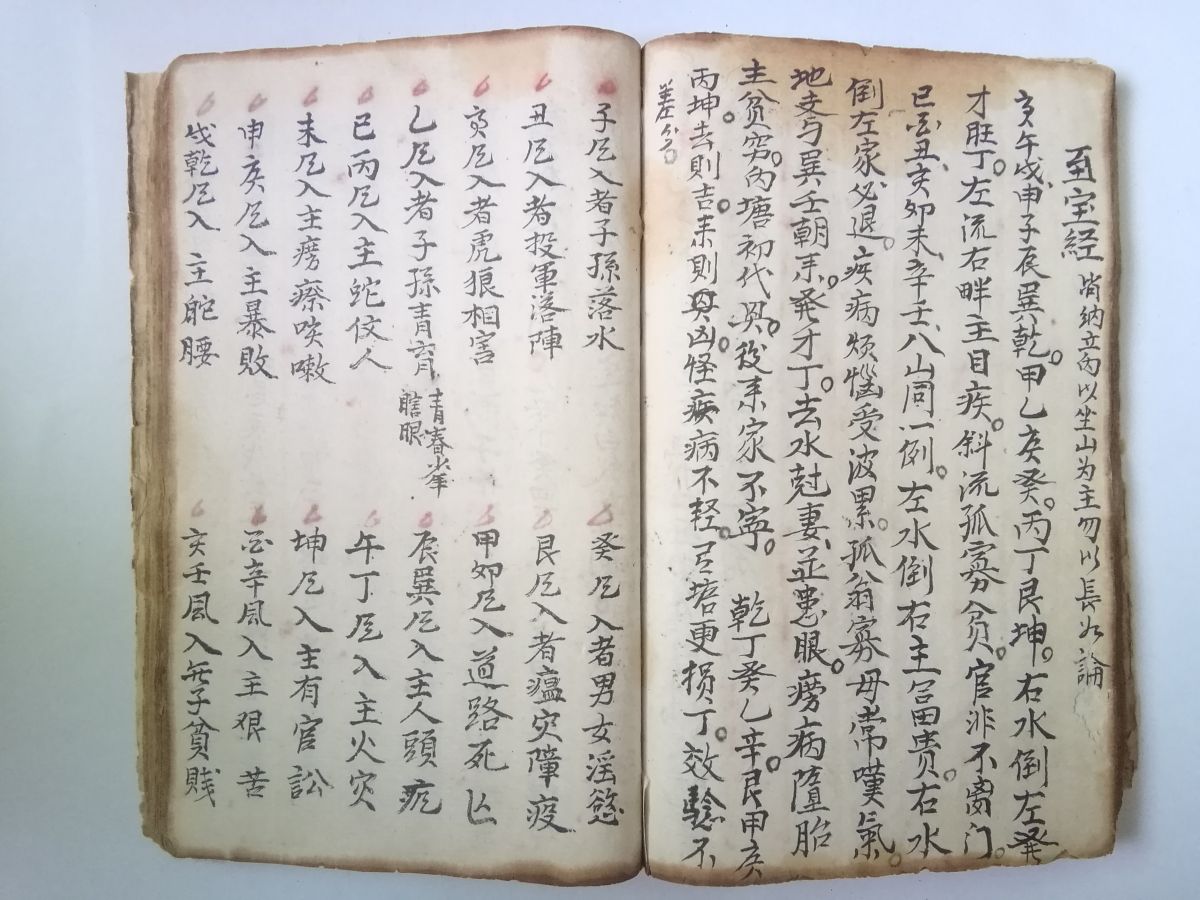 至宝经 尚納立向以坐山为主勿以長冈論
亥午戌申子辰巽乾甲乙亥癸丙丁艮坤右水倒左發
才旺丁左流右畔主目疾斜流孤寡貧官非不离门
巳酉丑亥卯未辛壬八山同一例左水倒右主富貴右水
倒左家必退疾病烦惱受波累孤翁寡母常嘆氣
地支与巽壬朝来發才丁去水尅妻並患眼癆病墮胎
主貧穷内塘初代興後来家不寧 乾丁癸乙辛艮甲亥
丙坤去則吉来則凶怪疾病不轻塘更损丁效驗不
差分
子凨入者子孫落水 癸凨入者男女淫慾
丑凨入者投軍落陣 艮凨入者瘟灾障疫
寅凨入者虎狼相害 甲卯凨入道路死亾
乙凨入者子孫青盲 青春少年 瞎眼 辰巽凨入主人頭疙
巳丙凨入主蛇佼人 午丁凨入主火灾
未凨入主癆瘵咳嗽 坤凨入主有官訟
申庚凨入主暴敗 酉辛風入主艰苦
戌乾凨入 主駝腰 亥壬風入無子貧賤